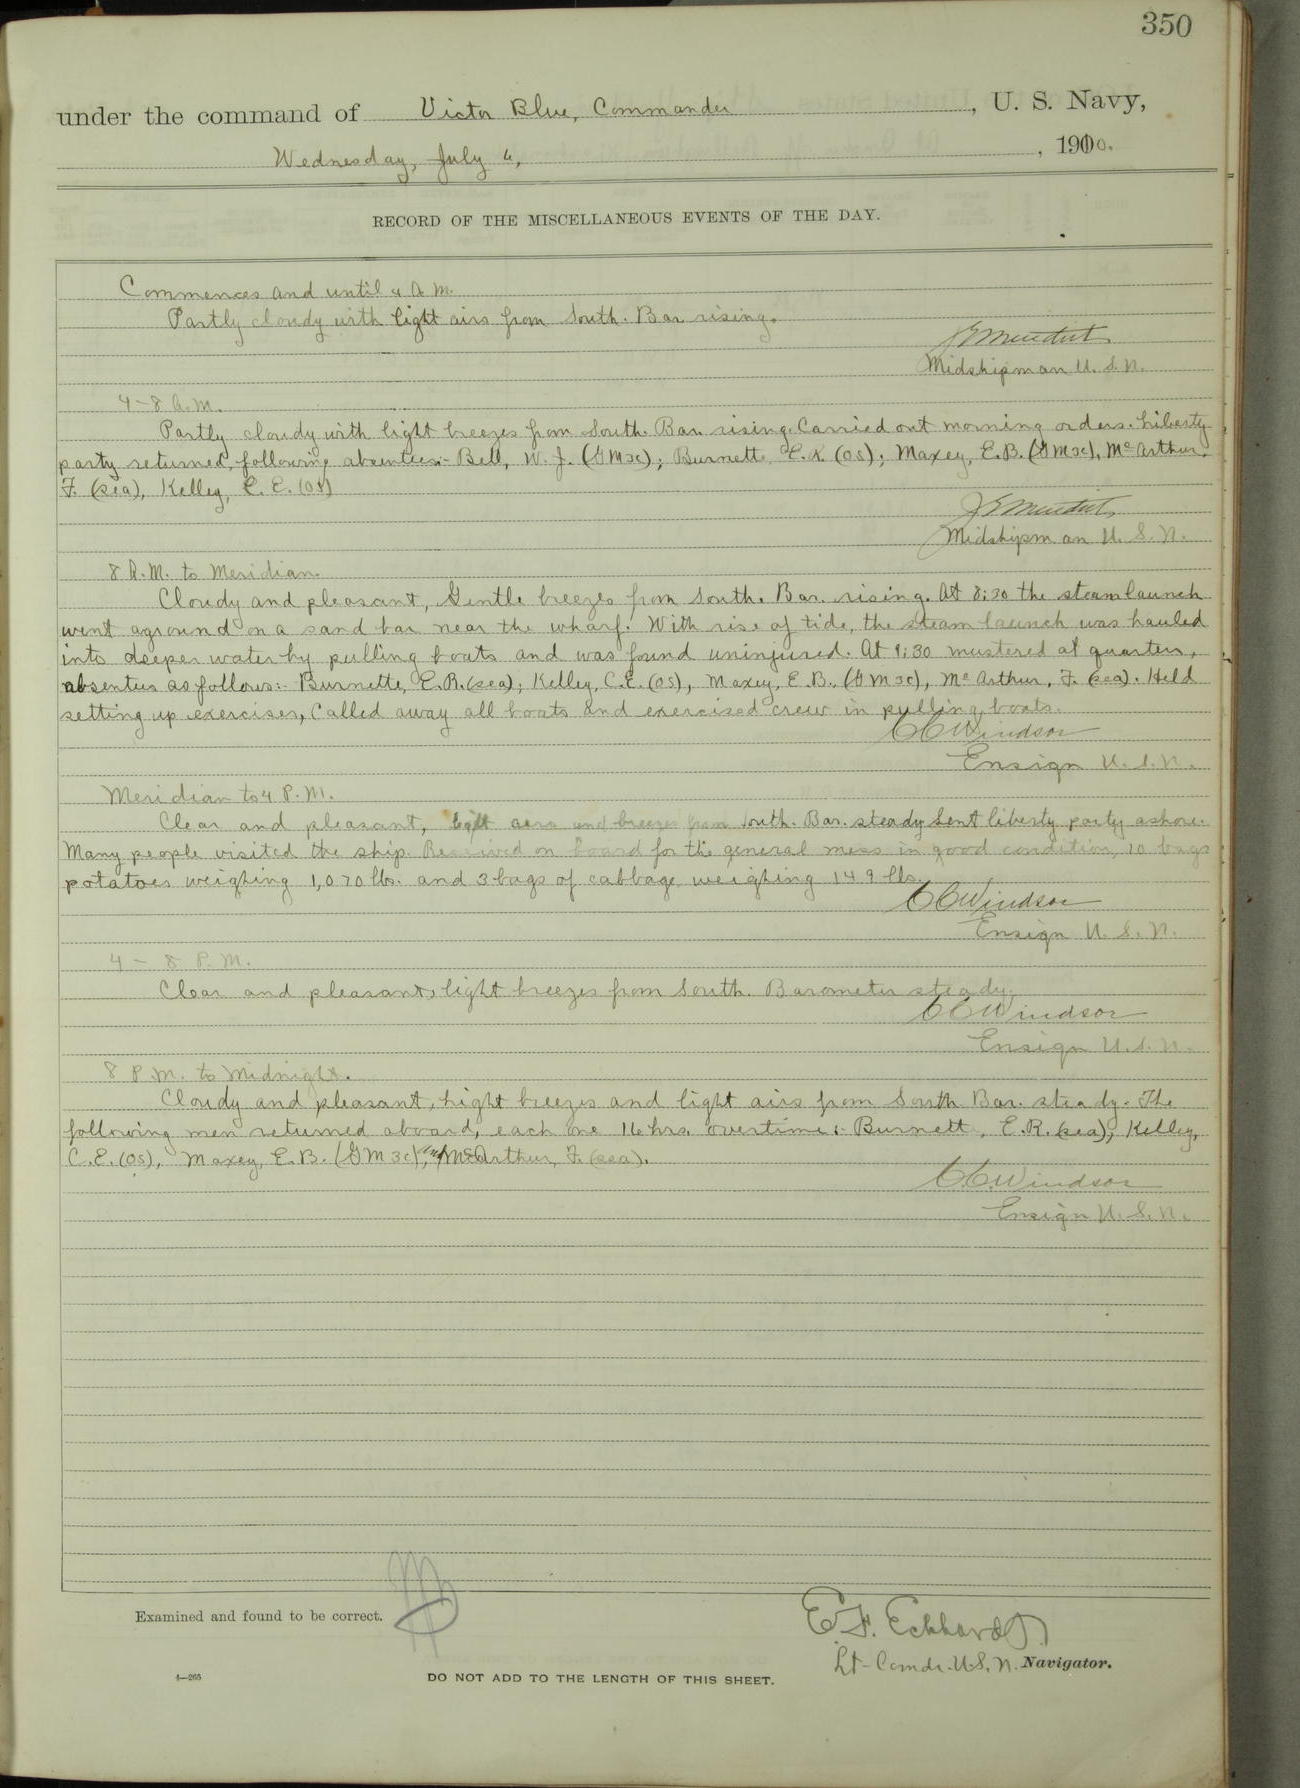 350
under the command of Victor Blue, Commander, U. S. Navy,
Wednesday, July 4, 1910.
RECORD OF THE MISCELLANEOUS EVENTS OF THE DAY.
Commences and until 4 A.M.
Partly cloudy with light airs from South. Bar rising.
Midshipman U. S. N.
4-8 A.M.
Partly cloudy with light breezes from South. Bar. rising. Carried out morning orders. Liberty
party returned, following absentees:- Bell, W. J. (GM3c); Burnette, E. R. (OS); Maxey, E.B. (GM3c), McArthur,
F. (sea), Kelley, C. E. (OS)
Midshipman U. S. N.
8 A.M. to Meridian.
Cloudy and pleasant, Gentle breezes from South. Bar. rising. At 8:30 the steam launch
went aground on a sand bar near the wharf. With rise of tide, the steam launch was hauled
into deeper water by pulling boats and was found uninjured. At 9:30 mustered at quarters,
absentees as follows:- Burnette, E.R. (sea); Kelley, C.E. (OS), Maxey, E.B., (GM3c), McArthur, F. (sea). Held
setting up exercises, Called away all boats and exercised crew in pulling boats.
C C Windsor
Ensign U. S. N.
Meridian to 4 P.M.
Clear and pleasant, light airs and breezes from South. Bar. steady. Sent liberty party ashore.
Many people visited the ship. Received on board for the general mess in good condition, 10 bags
potatoes weighing 1,070 lbs. and 3 bags of cabbage weighing 149 lbs.
C C Windsor
Ensign U. S. N.
4 - 8 P.M.
Clear and pleasant, light breezes from South. Barometer steady.
C C Windsor
Ensign U. S. N.
8 P.M. to Midnight.
Cloudy and pleasant, Light breezes and light airs from South Bar. steady. The
following men returned aboard, each one 16 hrs. overtime:- Burnett, E.R. (sea), Kelley,
C.E. (OS), Maxey, E.B. (GM3c), and McArthur, F. (sea).
C.C. Windsor
Ensign U. S. N.
Examined and found to be correct.
E. F. Eckhardt
Lt-Comdr. U.S.N. Navigator.
4—265
DO NOT ADD TO THE LENGTH OF THIS SHEET.